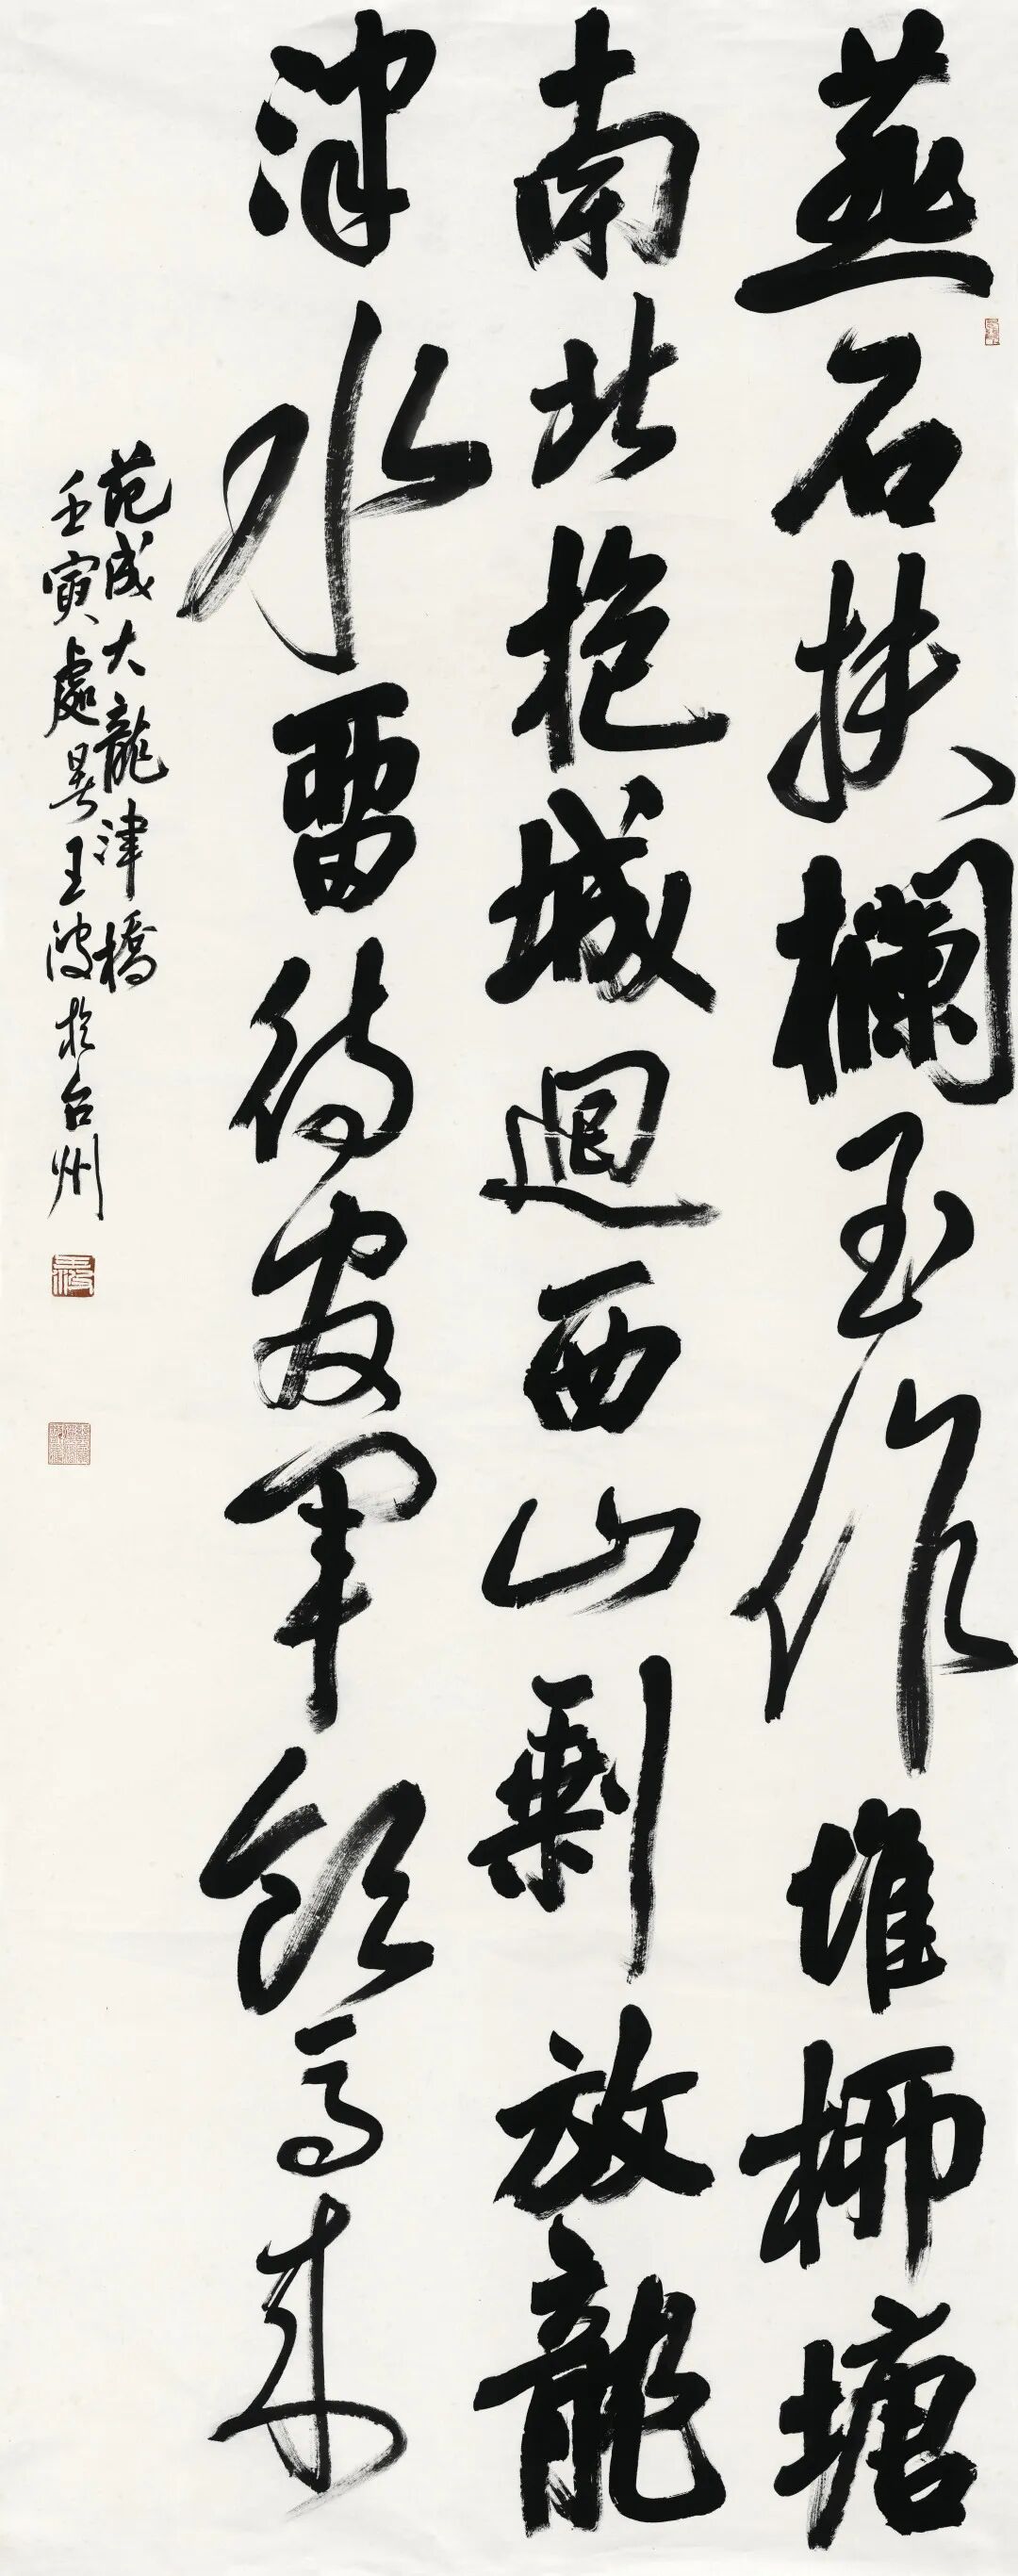 燕石扶欄玉作堆柳塘
南北抱城迴西山剩放龍
津水畱待官軍飲馬來
范成大龍津橋
壬寅處暑王波於台州